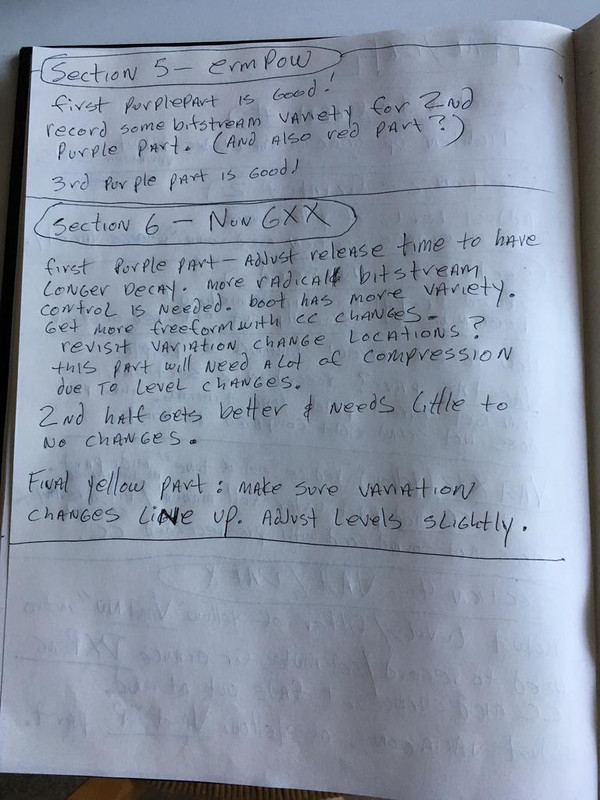 Section 5 - ermpow
first purple part is Good!
record some bitstream variety for 2nd
purple part. (And also red part?)
3rd purple part is Good!
Section 6 - Non GXX
first purple part - Adjust release time to have
longer decay. more radical bitstream
control is needed. boot has more variety.
Get more freeform with cc changes.
revisit variation change locations?
this part will need alot of compression
due to level changes.
2nd half gets better & needs little to
no changes.
Final yellow part: make sure variation
changes line up. Adjust levels slightly.